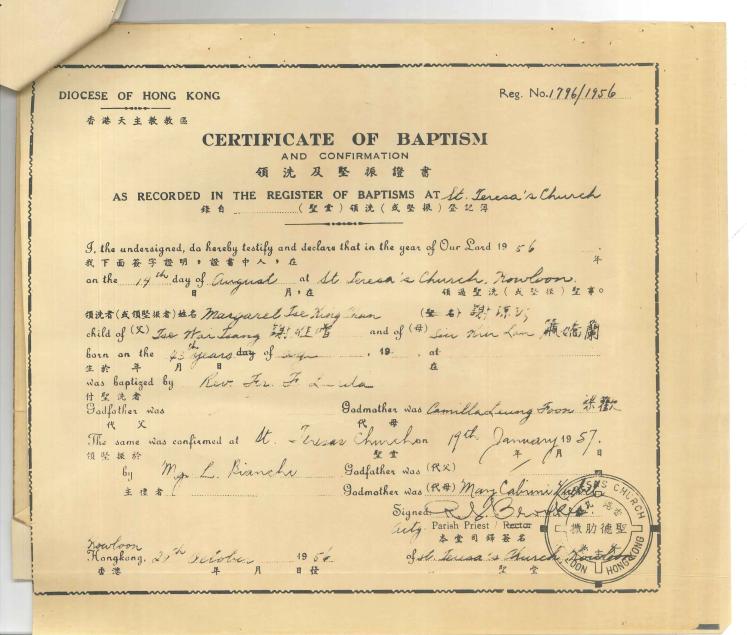 DIOCESE OF HONG KONG
Reg. No. 1796/1956
香港天主教教區
CERTIFICATE OF BAPTISM
AND CONFIRMATION
領洗及堅振證書
AS RECORDED IN THE REGISTER OF BAPTISMS AT St. Teresa's Church
錄自 (聖堂) 領洗 (或堅振) 登記簿
I, the undersigned, do hereby testify and declare that in the year of Our Lord 19 56
我下面簽字證明，證書中人，在 年
on the 14th day of August at St Teresa's Church, Kowloon.
日 月，在 領過聖洗 (或堅振) 聖事。
領洗者 (或領堅振者) 姓名 Margaret Tse (聖名) 謝
child of (父) Tse Wai Tsang 謝維曾 and of (母) Lan 蘭
born on the years day of , 19 at
生於 年 月 日 在
was baptized by Rev. Fr. F.
付聖洗者
Godfather was Godmother was Camilla Leung Foon
代父 代母
The same was confirmed at St. Teresas Church on 19th January 1957.
領堅振於 聖堂 年 月 日
by L. Bianchi Godfather was (代父)
主禮者 Godmother was (代母) Mary Cabrini
Signed
Actg. Parish Priest / Rector
本堂司鐸簽名
Kowloon
Hongkong, October 19 56 of St. Teresa's Church, Kowloon
香港 年 月 日發 聖堂
CHURCH
聖德肋撒
HONGKONG